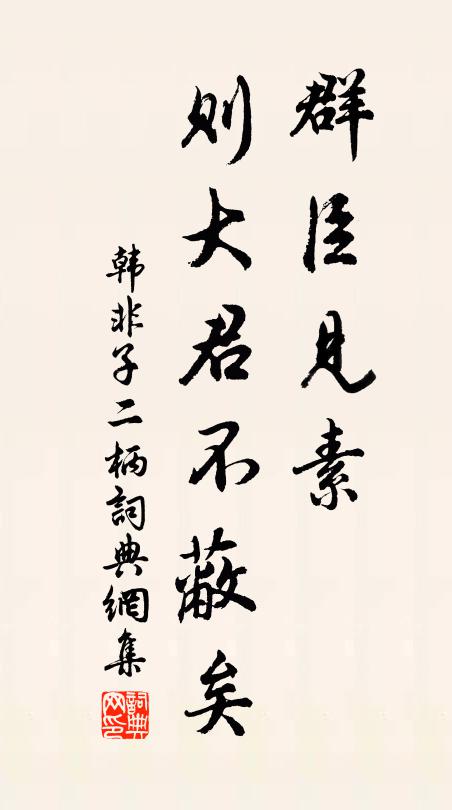 群臣見素
則大君不蔽矣
韩非子二柄詞典網集
詞典网印